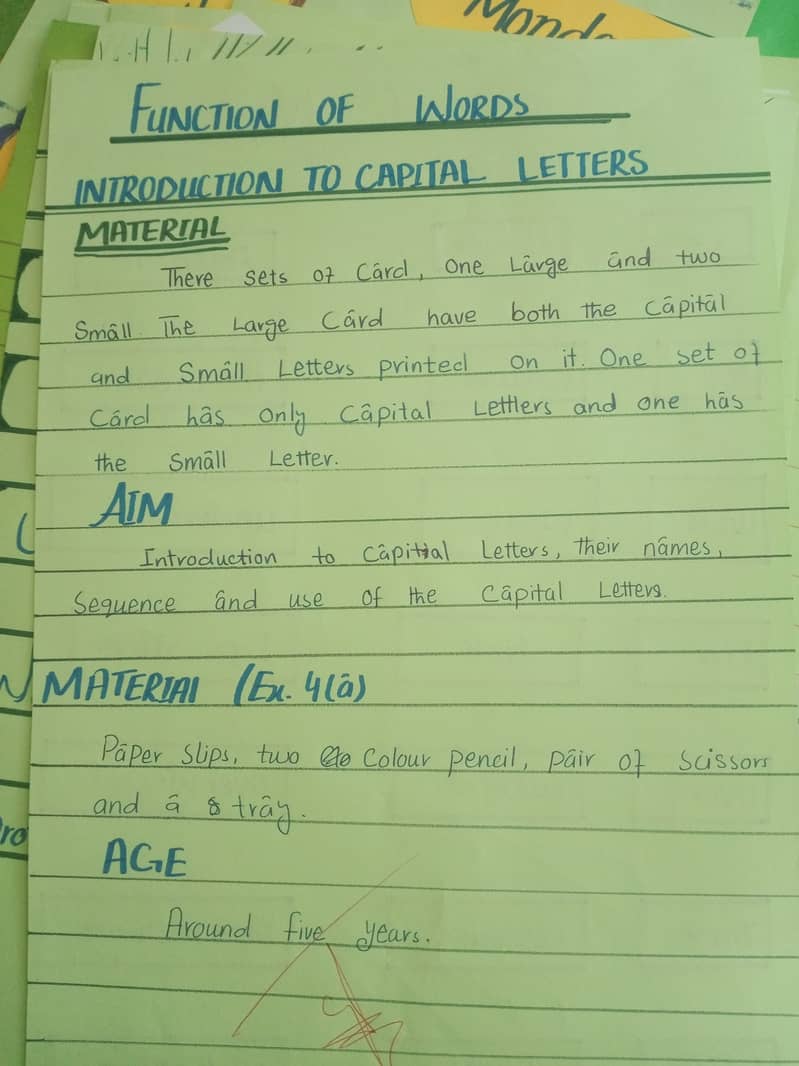 Monda
FUNCTION OF WORDS
INTRODUCTION TO CAPITAL LETTERS
MATERIAL
There sets of Cārd, One Lārge ānd two
Smāll. The Large Cārd have both the Cāpitāl
and Smāll Letters printed on it. One set of
Cārd hās only Cāpital Lettlers and one hās
the Smāll Letter.
AIM
Introduction to Cāpitial Letters, their nāmes,
Sequence ānd use of the Cāpital Letters.
MATERIAl (Ex. 4(ā)
Pāper slips, two Colour pencil, pāir of scissors
and ā trāy.
AGE
Around five years.
ro